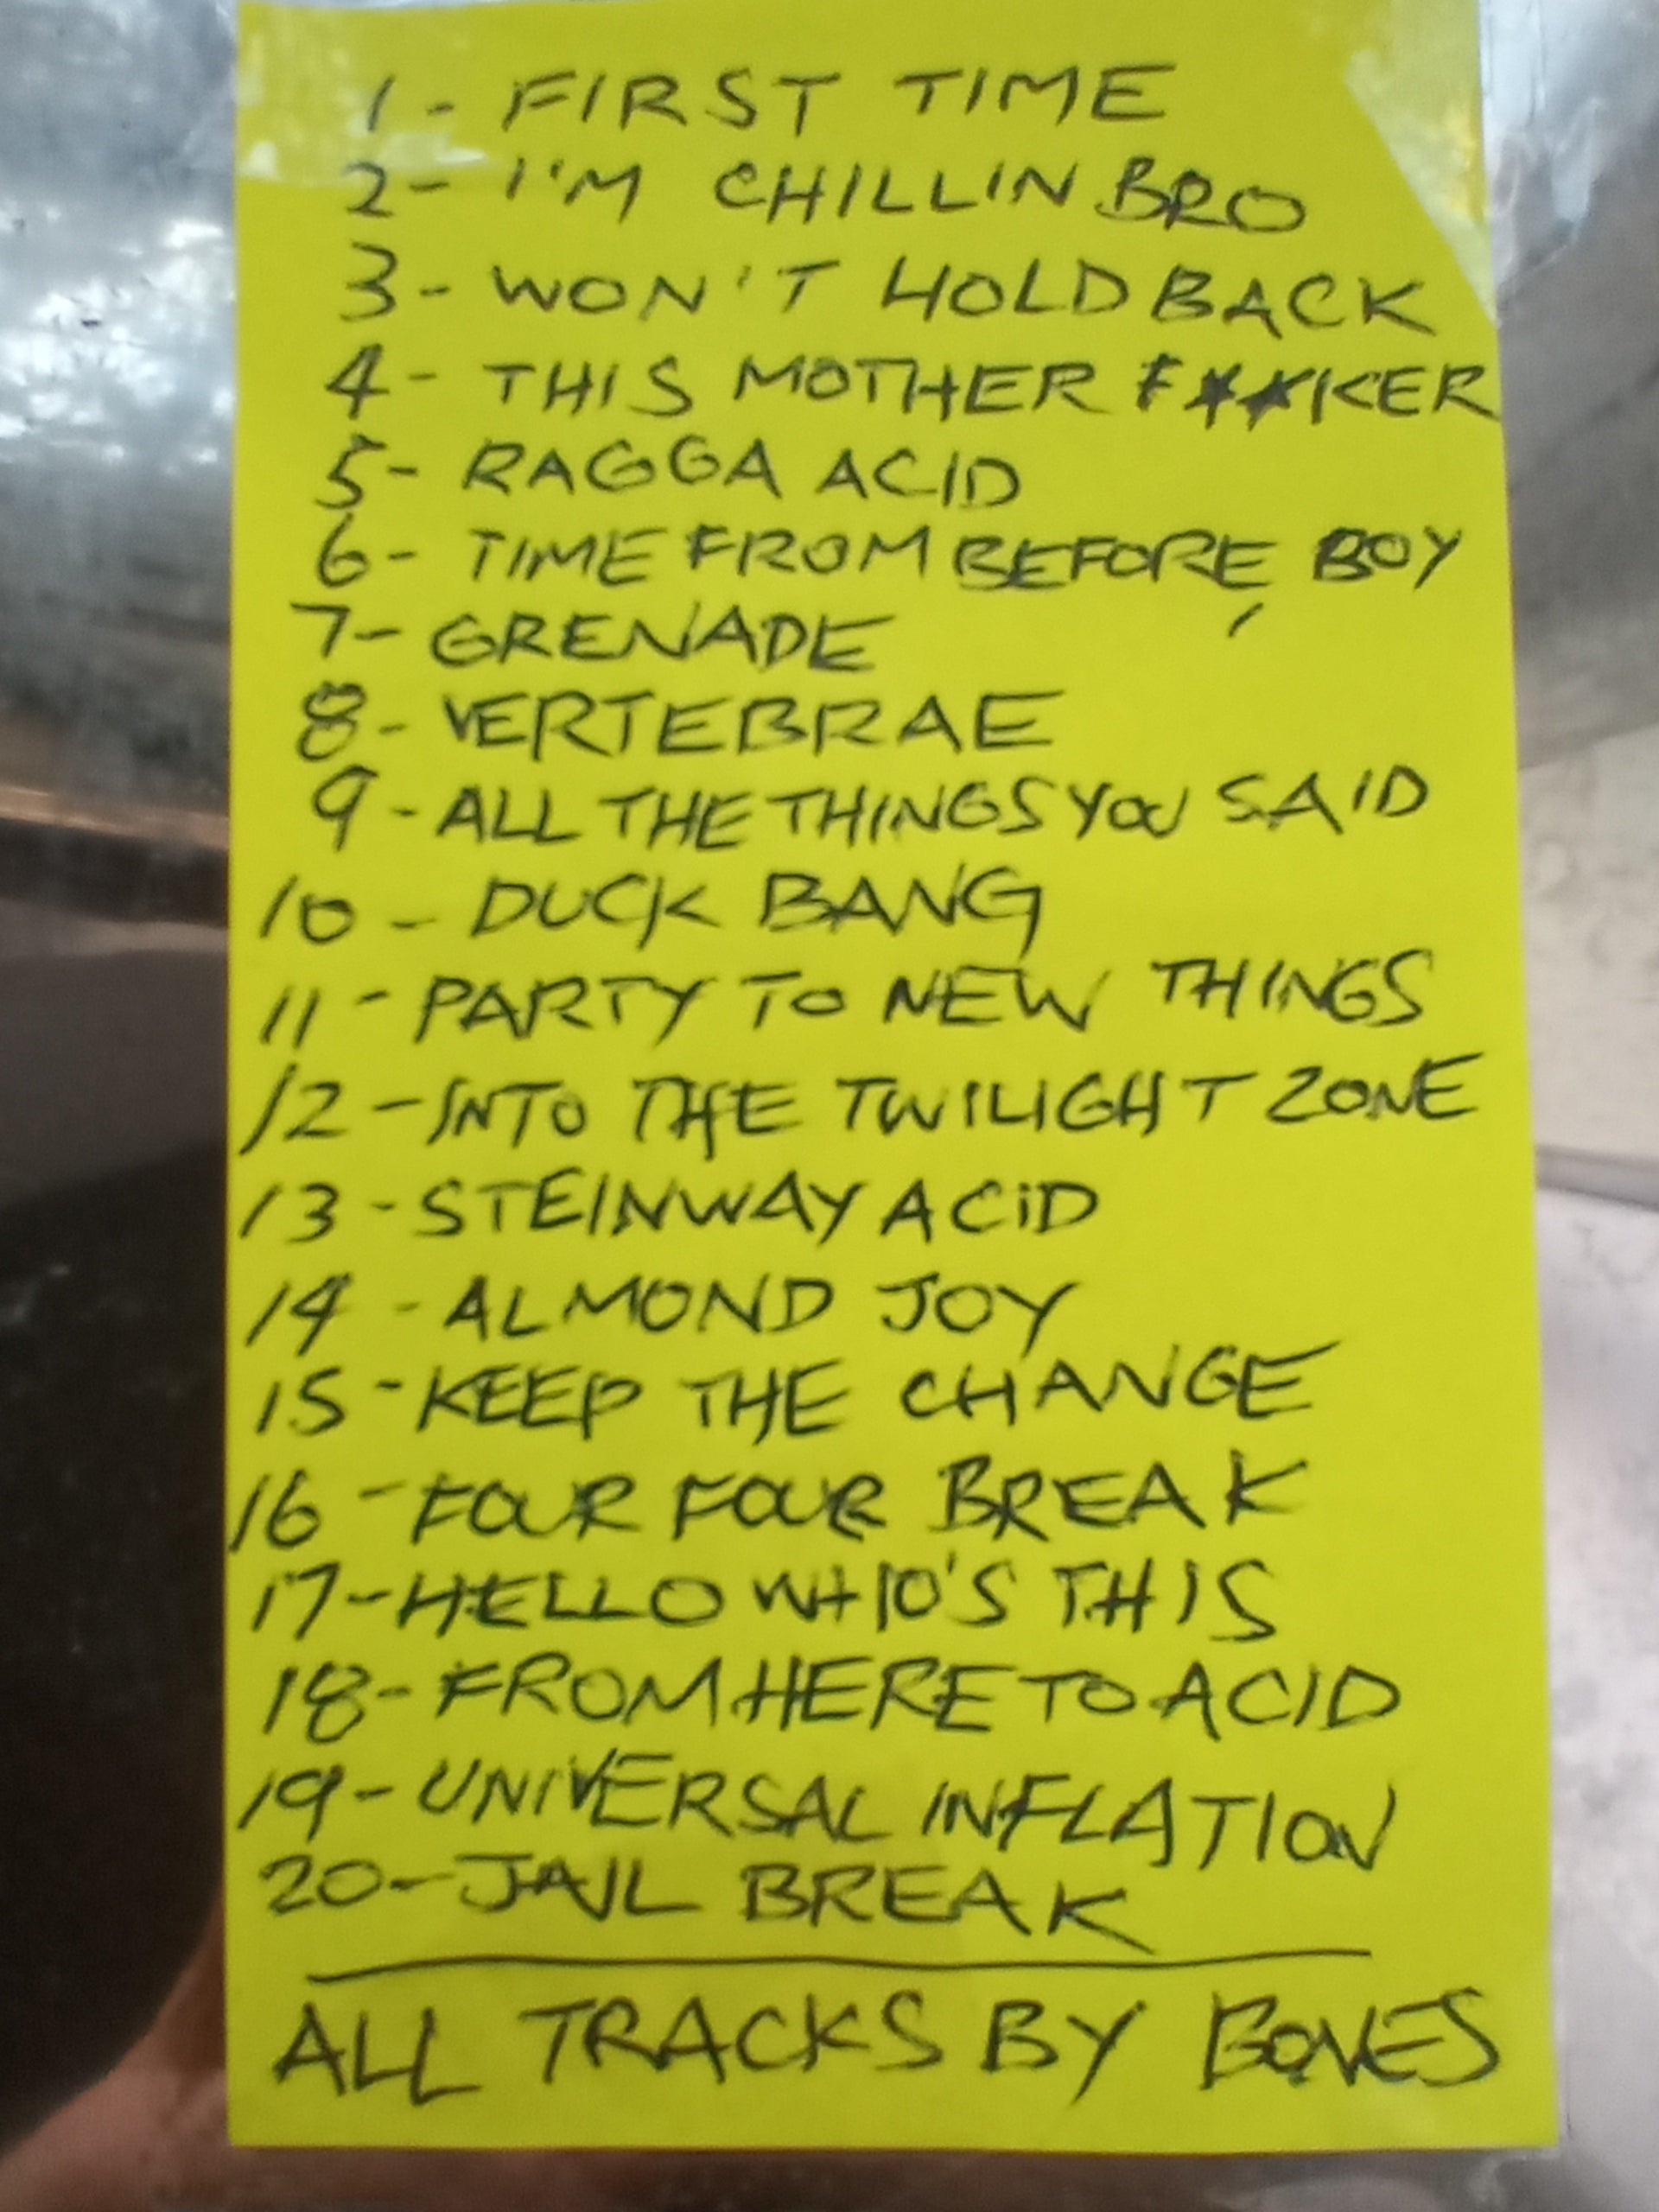 1 - FIRST TIME
2 - I'M CHILLIN BRO
3 - WON'T HOLD BACK
4 - THIS MOTHER F**KER
5 - RAGGA ACID
6 - TIME FROM BEFORE BOY
7 - GRENADE
8 - VERTEBRAE
9 - ALL THE THINGS YOU SAID
10 - DUCK BANG
11 - PARTY TO NEW THINGS
12 - INTO THE TWILIGHT ZONE
13 - STEINWAY ACID
14 - ALMOND JOY
15 - KEEP THE CHANGE
16 - FOUR FOUR BREAK
17 - HELLO WHO'S THIS
18 - FROM HERE TO ACID
19 - UNIVERSAL INFLATION
20 - JAIL BREAK
ALL TRACKS BY BONES